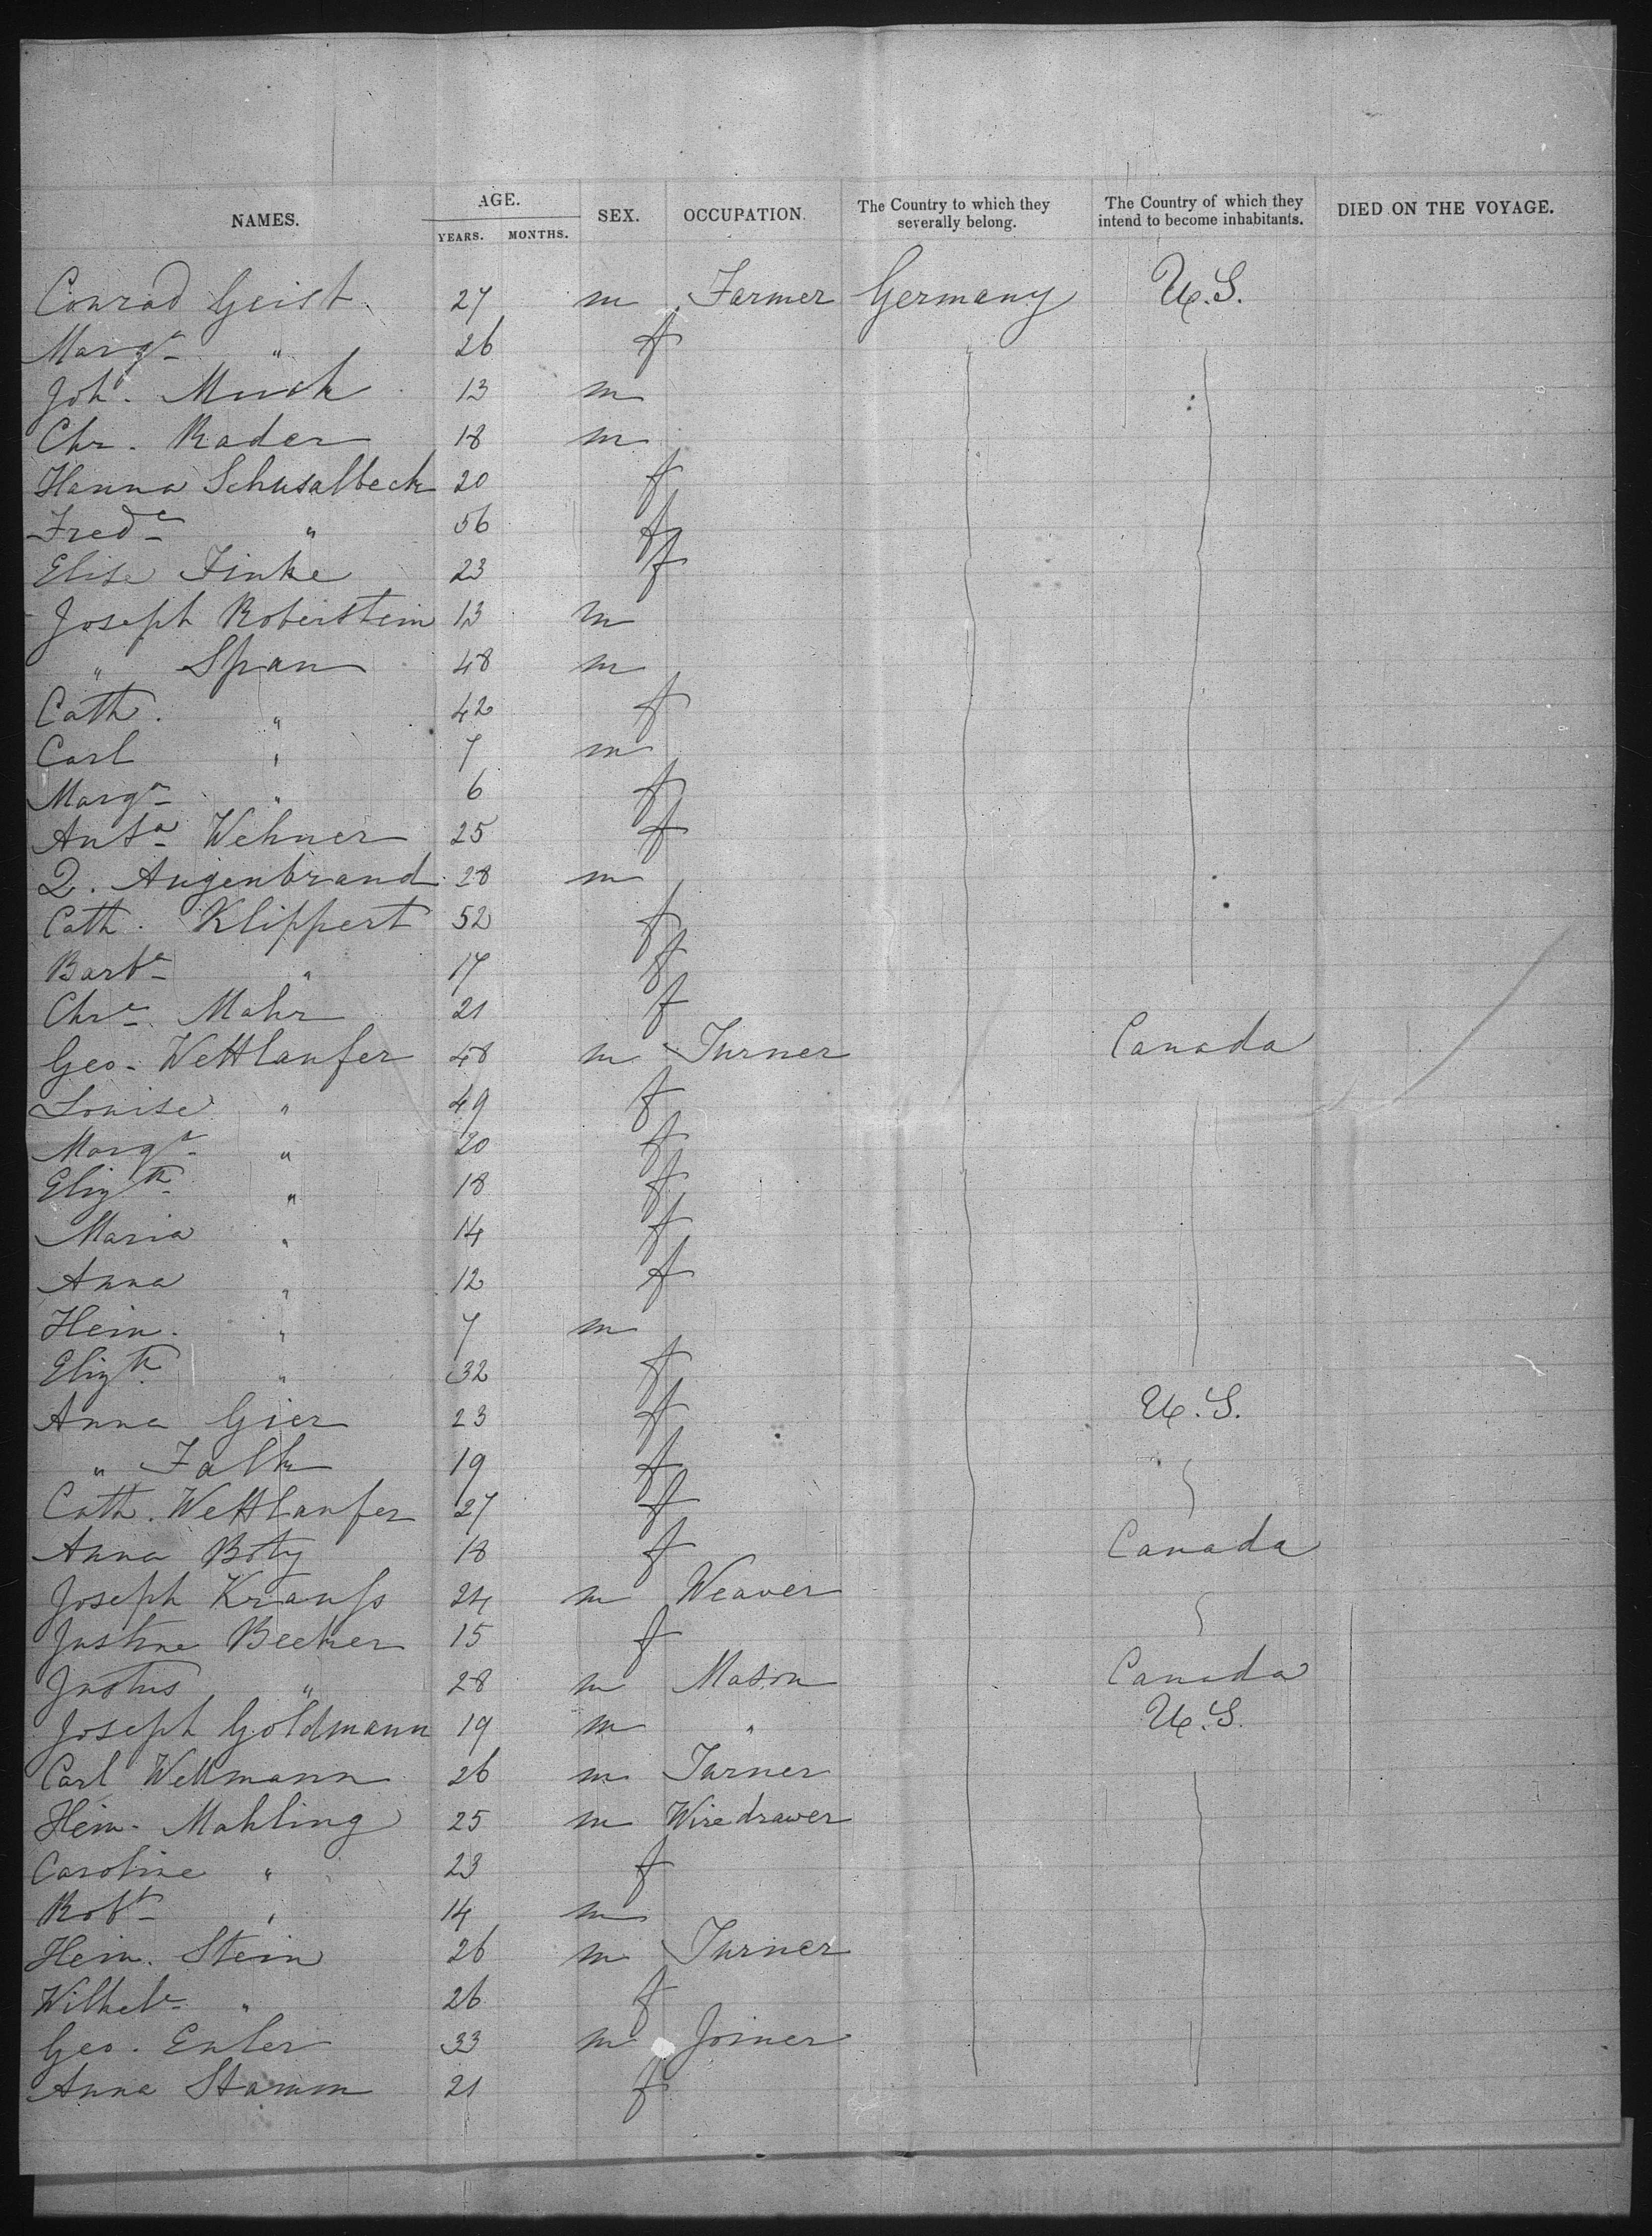 NAMES. AGE. YEARS. MONTHS. SEX. OCCUPATION. The Country to which they severally belong. The Country of which they intend to become inhabitants. DIED ON THE VOYAGE.
Conrad Geist 27 m Farmer Germany U.S.
Margr " 26 f
Joh. Muck 13 m
Chr. Rader 18 m
Hanna Schusalbeck 20 f
Frede " 56 f
Elise Finke 23 f
Joseph Roberstein 13 m
" Span 48 m
Cath. " 42 f
Carl " 7 m
Margr " 6 f
Anta Wehner 25 f
Q. Augenbrand 28 m
Cath. Klippert 52 f
Barba " 17 f
Chre Mahr 21 f
Geo. Wettlaufer 48 m Turner Canada
Louise " 49 f
Margr " 20 f
Elizth " 18 f
Maria " 14 f
Anna " 12 f
Hein. " 7 m
Elizth " 32 f
Anna Gier 23 f U.S.
" Falk 19 f
Cath. Wettlaufer 27 f
Anna Boty 18 f Canada
Joseph Krauss 24 m Weaver
Justine Becker 15 f
Justus " 28 m Mason Canada
Joseph Goldmann 19 m " U.S.
Carl Wellmann 26 m Turner
Hein. Mahling 25 m Wiredrawer
Caroline " 23 f
Robt " 14 m
Hein. Stein 26 m Turner
Wilhele " 26 f
Geo. Euler 33 m Joiner
Anna Stamm 21 f